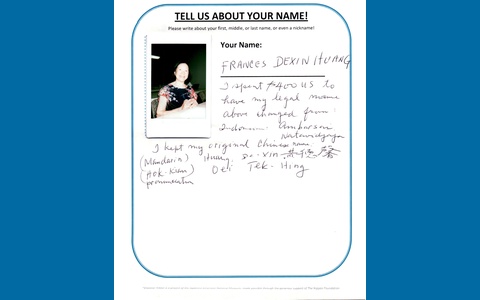 TELL US ABOUT YOUR NAME!
Please write about your first, middle, or last name, or even a nickname!
Your Name:
FRANCES DEXIN HUANG
I spent $400 US to
have my legal name
above changed from:
I kept my original Chinese name
(Mandarin) Huang De-Xin 黄德馨
(Hok-kien) Oei Tek-Hing
pronunciation